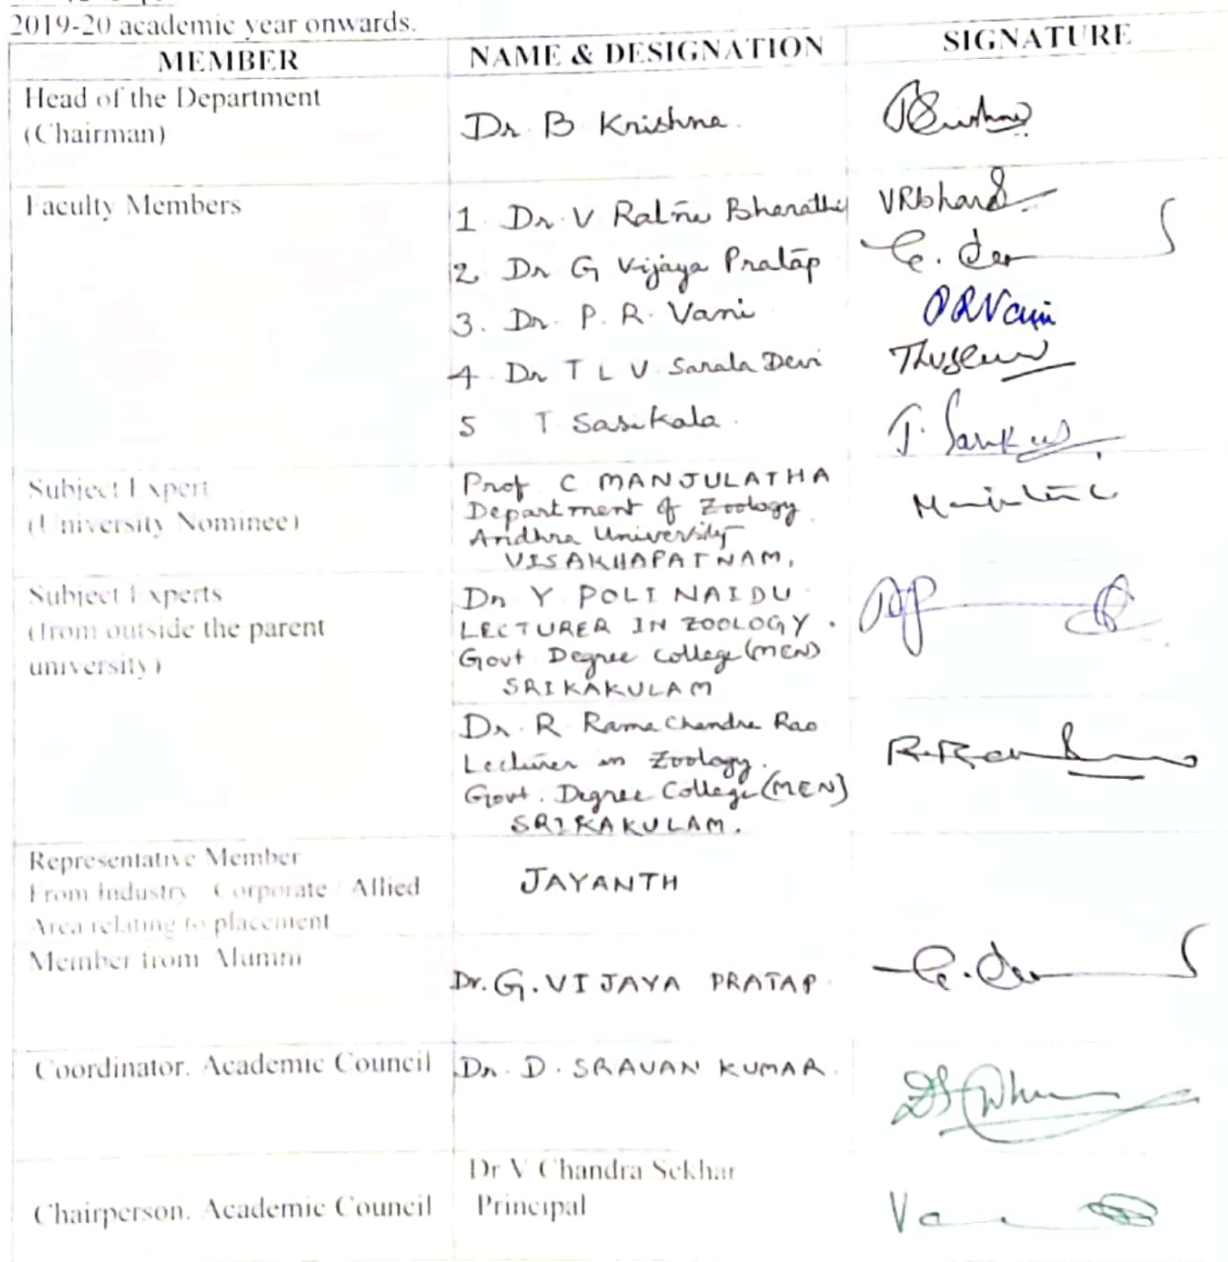 2019-20 academic year onwards.
MEMBER NAME & DESIGNATION SIGNATURE
Head of the Department
(Chairman)
Dr B Krishna
Faculty Members
1 Dr V Ratna Bharathi VRbharathi
2 Dr G Vijaya Pratap
3. Dr. P. R. Vani PRVani
4 Dr T L V Sarala Devi
5 T Sasikala
Subject Expert
(University Nominee)
Prof C MANJULATHA
Department of Zoology
Andhra University
VISAKHAPATNAM.
Subject Experts
(from outside the parent
university)
Dr Y POLI NAIDU
LECTURER IN ZOOLOGY.
Govt Degree College (MEN)
SRIKAKULAM
Dr. R Rama Chandra Rao
Lecturer in Zoology.
Govt. Degree College (MEN)
SRIKAKULAM.
Representative Member
From Industry Corporate Allied
Area relating to placement
JAYANTH
Member from Alumni
Dr. G. VIJAYA PRATAP
Coordinator, Academic Council Dr. D. SRAVAN KUMAR
Dr V Chandra Sekhar
Chairperson, Academic Council Principal